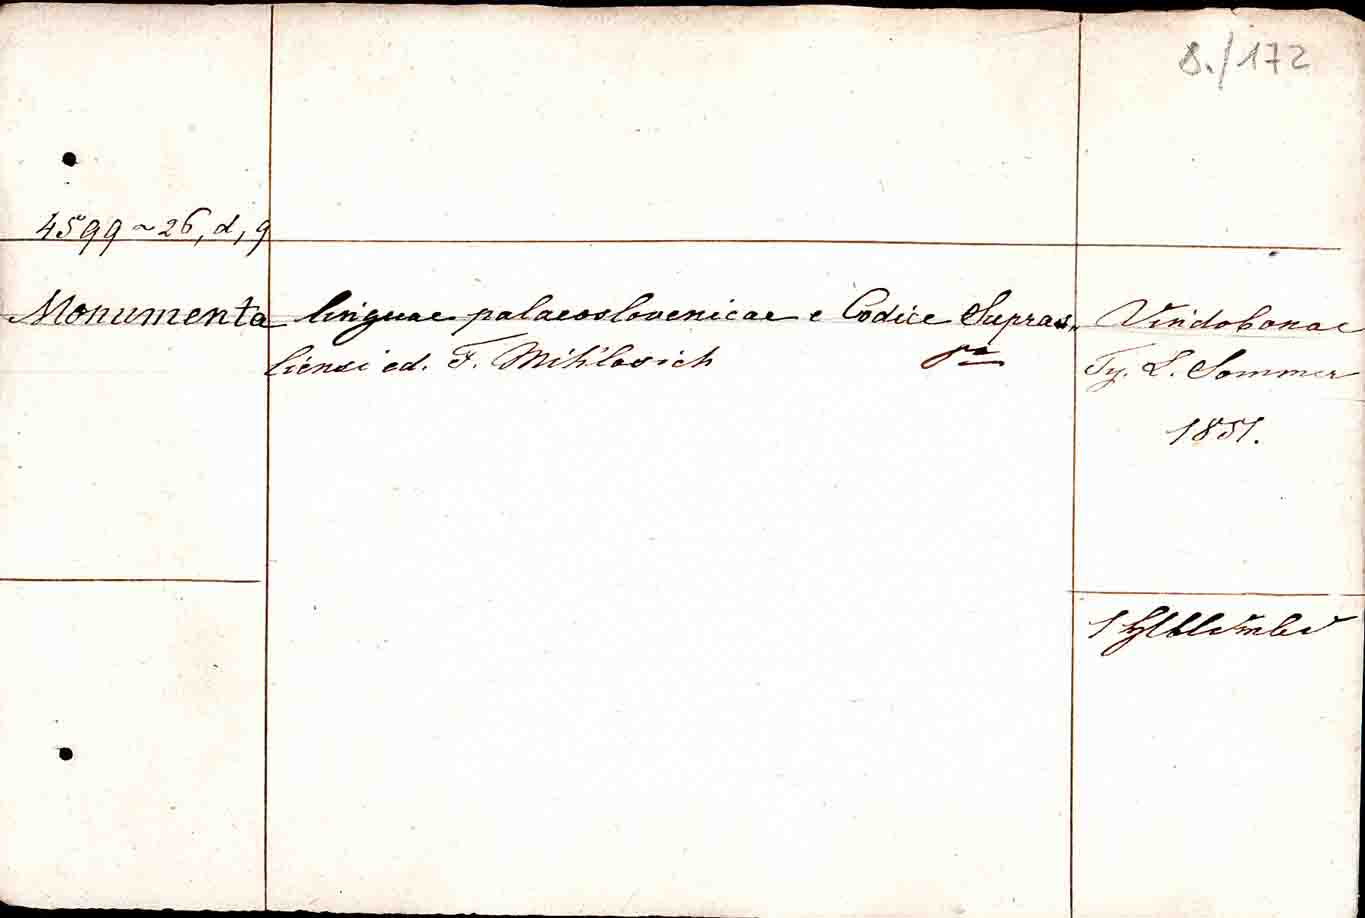 8./172
4599~26, d, g
Monumenta linguae palaeoslovenicae e Codice Supras„
liensi ed. F. Miklosich 8°
Vindobonae
Ty. L. Sommer
1851.
1